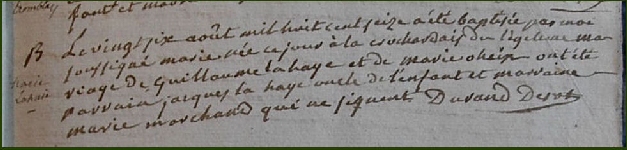 tremblay
fant et mar
B Le vingt six août mil huit cent seize a été baptisée par moi
marie lahaie
soussigné marie née ce jour à la crochardais du légitime ma
riage de Guillaume la haye et de marie oheix ont été
parrain jacques la haye oncle de l'enfant et marraine
marie marchand qui ne signent Durand Desot